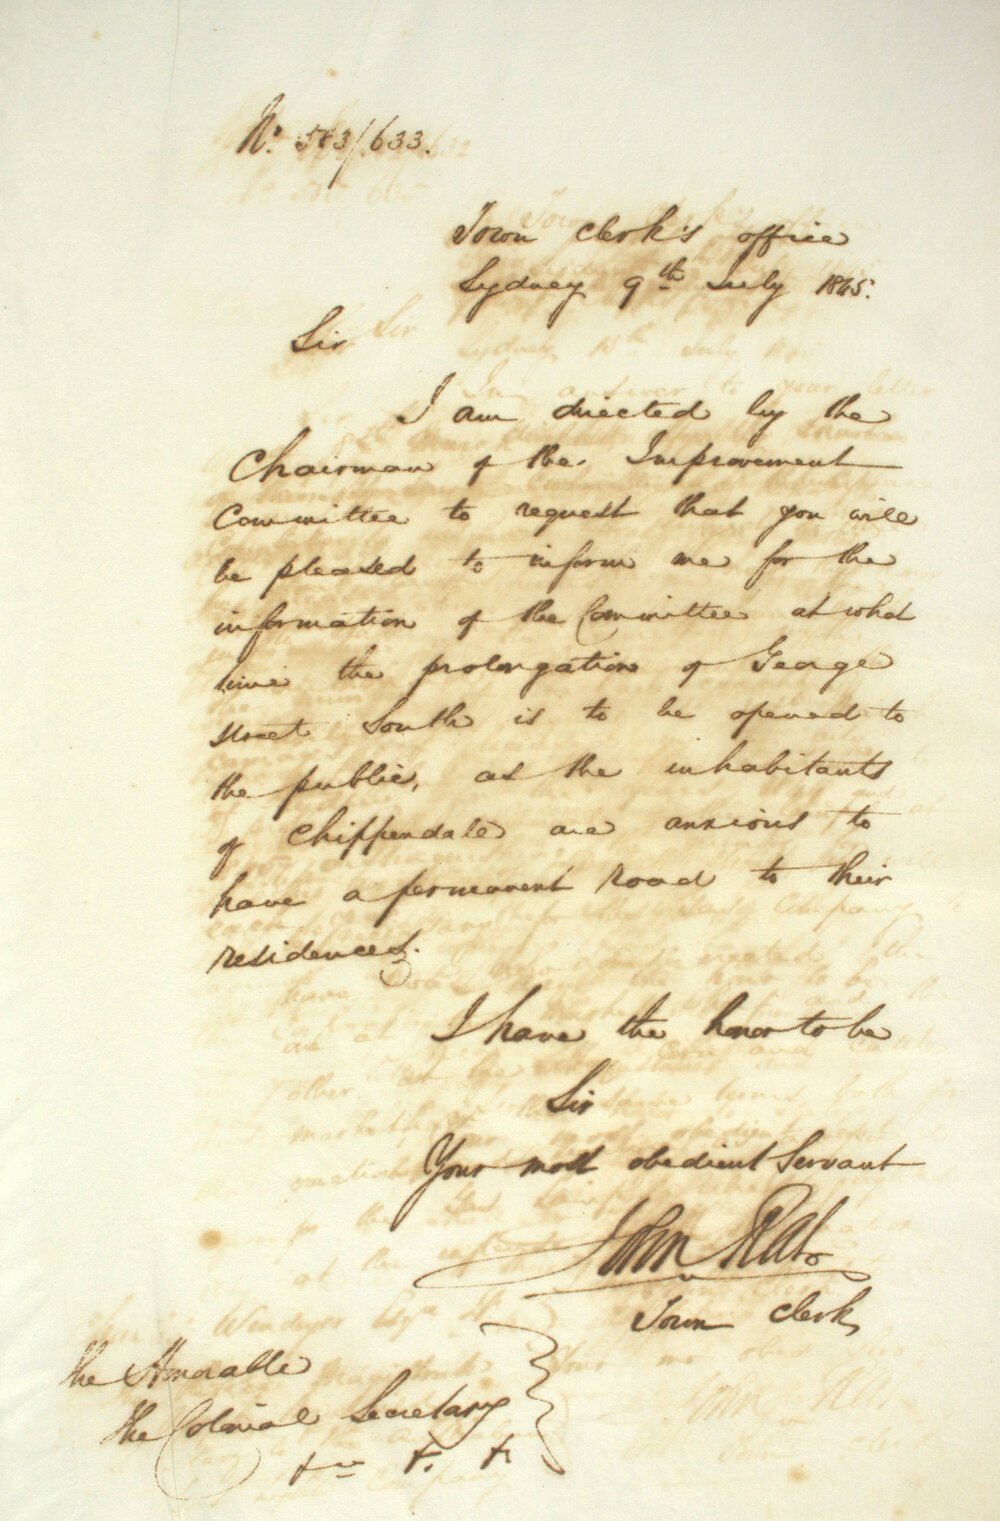 No. 583/633.
Town Clerk's office
Sydney 9th July 1845.
Sir
I am directed by the
Chairman of the Improvement
Committee to request that you will
be pleased to inform me for the
information of the Committee at what
time the prolongation of George
street South is to be opened to
the public, as the inhabitants
of Chippendale are anxious to
have a permanent Road to their
residences.
I have the honor to be
Sir
Your most obedient Servant
John Rae
Town Clerk
The Honorable
The Colonial Secretary